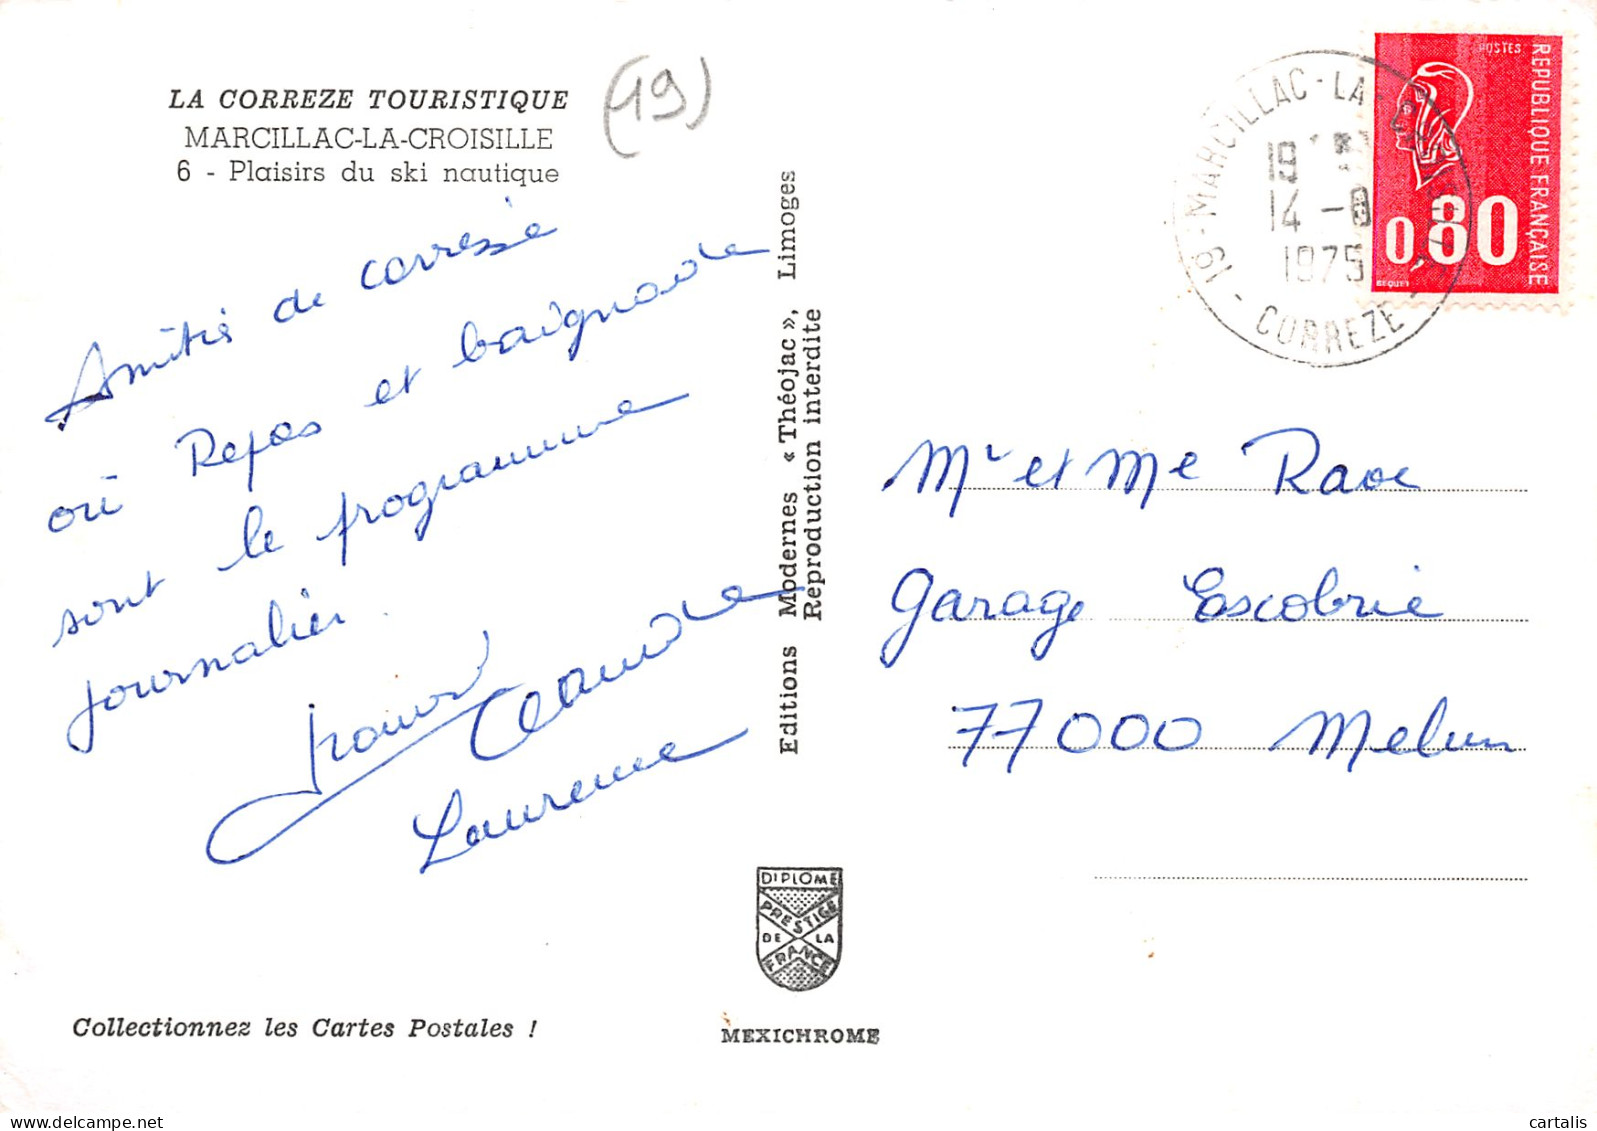 LA CORREZE TOURISTIQUE
MARCILLAC-LA-CROISILLE
6 - Plaisirs du ski nautique
(19)
Amitiés de corrèze
où Repas et baignade
sont le programme
journalier.
Claude
Laurence
Editions Modernes « Théojac », Limoges
Reproduction interdite
POSTES
REPUBLIQUE FRANÇAISE
0,80
BEQUET
19 - MARCILLAC-LA-
CORREZE
19
14 -8
1975
Mr et Me Raoe
Garage Escobrie
77000 Melun
DIPLOME
PRESTIGE
DE LA
FRANCE
MEXICHROME
Collectionnez les Cartes Postales !
cartalis